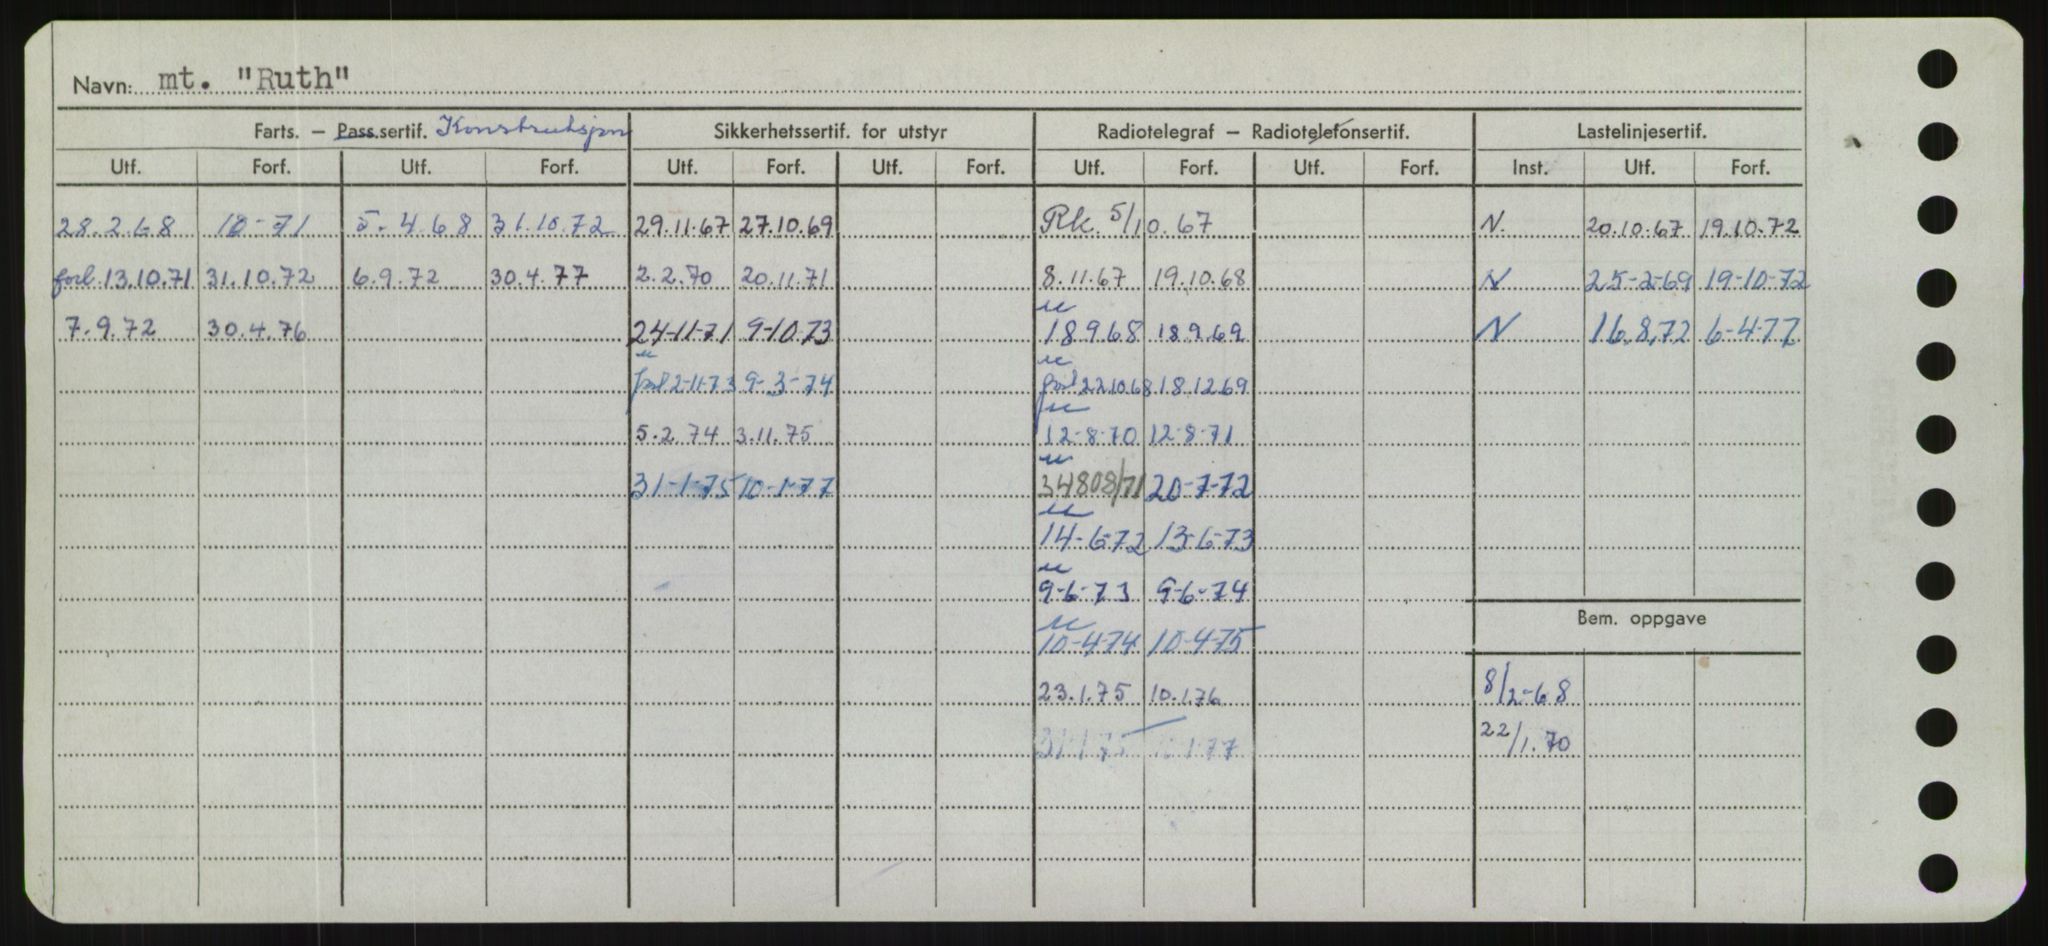 Navn: mt. "Ruth"
Farts. – Pass.sertif. Konstruksjon Sikkerhetssertif. for utstyr Radiotelegraf – Radiotelefonsertif. Lastelinjesertif.
Utf. Forf. Utf. Forf. Utf. Forf. Utf. Forf. Utf. Forf. Utf. Forf. Inst. Utf. Forf.
28.2.68 10-71 5.4.68 31.10.72 29.11.67 27.10.69 Rk. 5/10.67 N. 20.10.67 19.10.72
forl. 13.10.71 31.10.72 6.9.72 30.4.77 2.2.70 20.11.71 8.11.67 19.10.68 N 25-2-69 19-10-72
7.9.72 30.4.76 24-11-71 9-10.73 18968 18.9.69 N 16.8.72 6-4-77
forl 2-11-73 9-3-74 forl 22.10.68 18.12.69
5.2.74 3.11.75 12-8-70 12-8-71
31-1-75 10-1-77 34808/71 20-7-72
14-6-72 13-6-73
9-6-73 9-6-74
Bem. oppgave
10-4-74 10-4-75
23.1.75 10.1.76 8/2-68
31-1-75 10-1-77 22/1.70